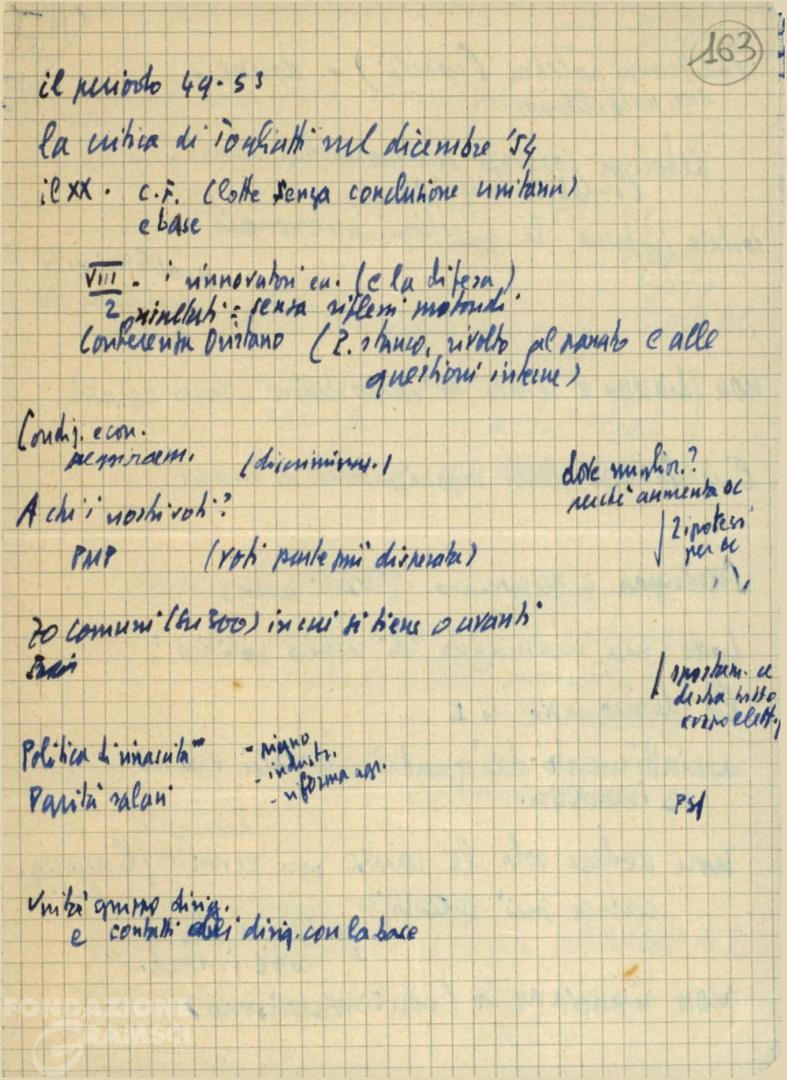 163
il periodo 49-53
la critica di Togliatti nel dicembre '54
il XX. C.F. (lotte senza conclusione unitaria)
e base
VIII - i rinnovatori ecc. (e la difesa)
2 : senza riflessi
Conferenza Oristano (P. stanco, rivolto al passato e alle
questioni interne)
Condiz. econ.
(discriminaz.)
dove miglior.?
perché aumenta DC
A chi i nostri voti?
2 ipotesi
per DC
PMP (voti parte più disperata)
70 comuni (su 300) in cui si tiene o avanti
spostam. a
destra tutto
corpo elett.
Politica di rinascita - piano
- industr.
- riforma agr.
Parità salari
PSI
Unità gruppo dirig.
e contatti degli dirig. con la base
FONDAZIONE
GRAMSCI